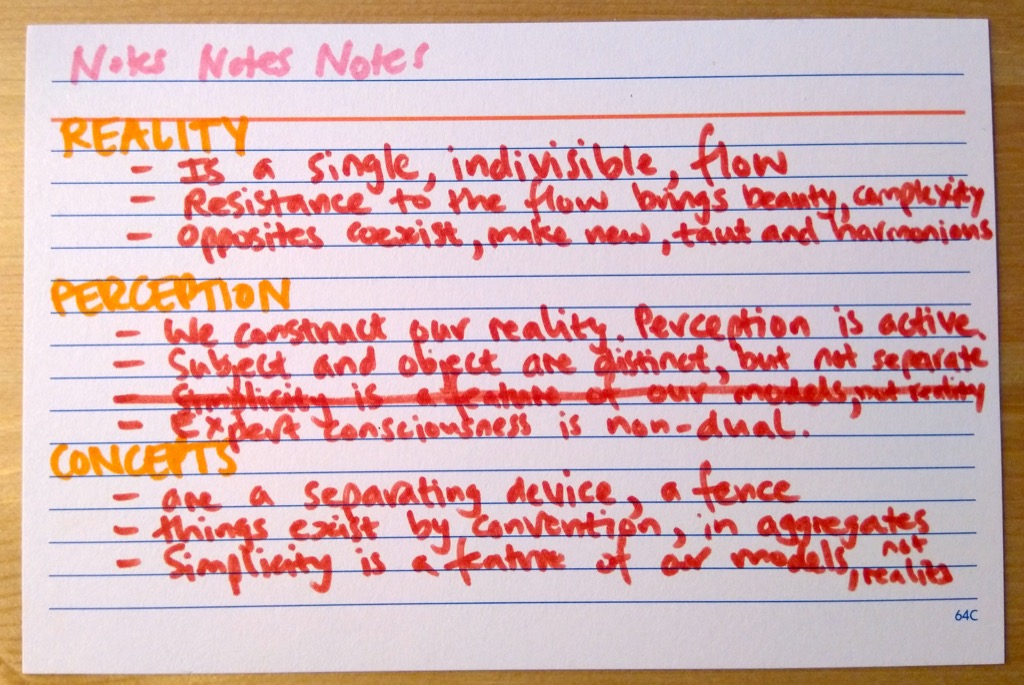 Notes Notes Notes
REALITY
- Is a single, indivisible, flow
- Resistance to the flow brings beauty, complexity
- Opposites coexist, make new, taut and harmonious
PERCEPTION
- We construct our reality. Perception is active.
- Subject and object are distinct, but not separate
- Simplicity is a feature of our models, not reality
- Expert consciousness is non-dual.
CONCEPTS
- are a separating device, a fence
- things exist by convention, in aggregates
- Simplicity is a feature of our models, not
reality
64C